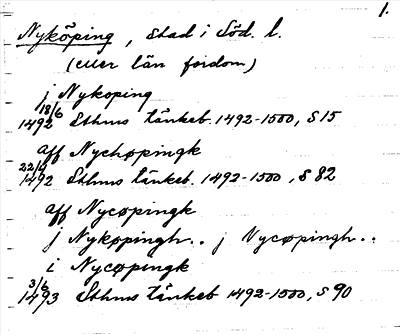 1.
Nyköping, stad i Söd. l.
(eller län fordom)
j Nykoping
18/6
1492 Sthms tänkeb. 1492-1500, S 15
aff Nychøpingk
22/6
1492 Sthms tänkeb. 1492-1500, S 82
aff Nycøpingk
j Nykøpingh.. j Nycøpingh..
i Nycøpingk
3/6
1493 Sthms tänkeb 1492-1500, S 90